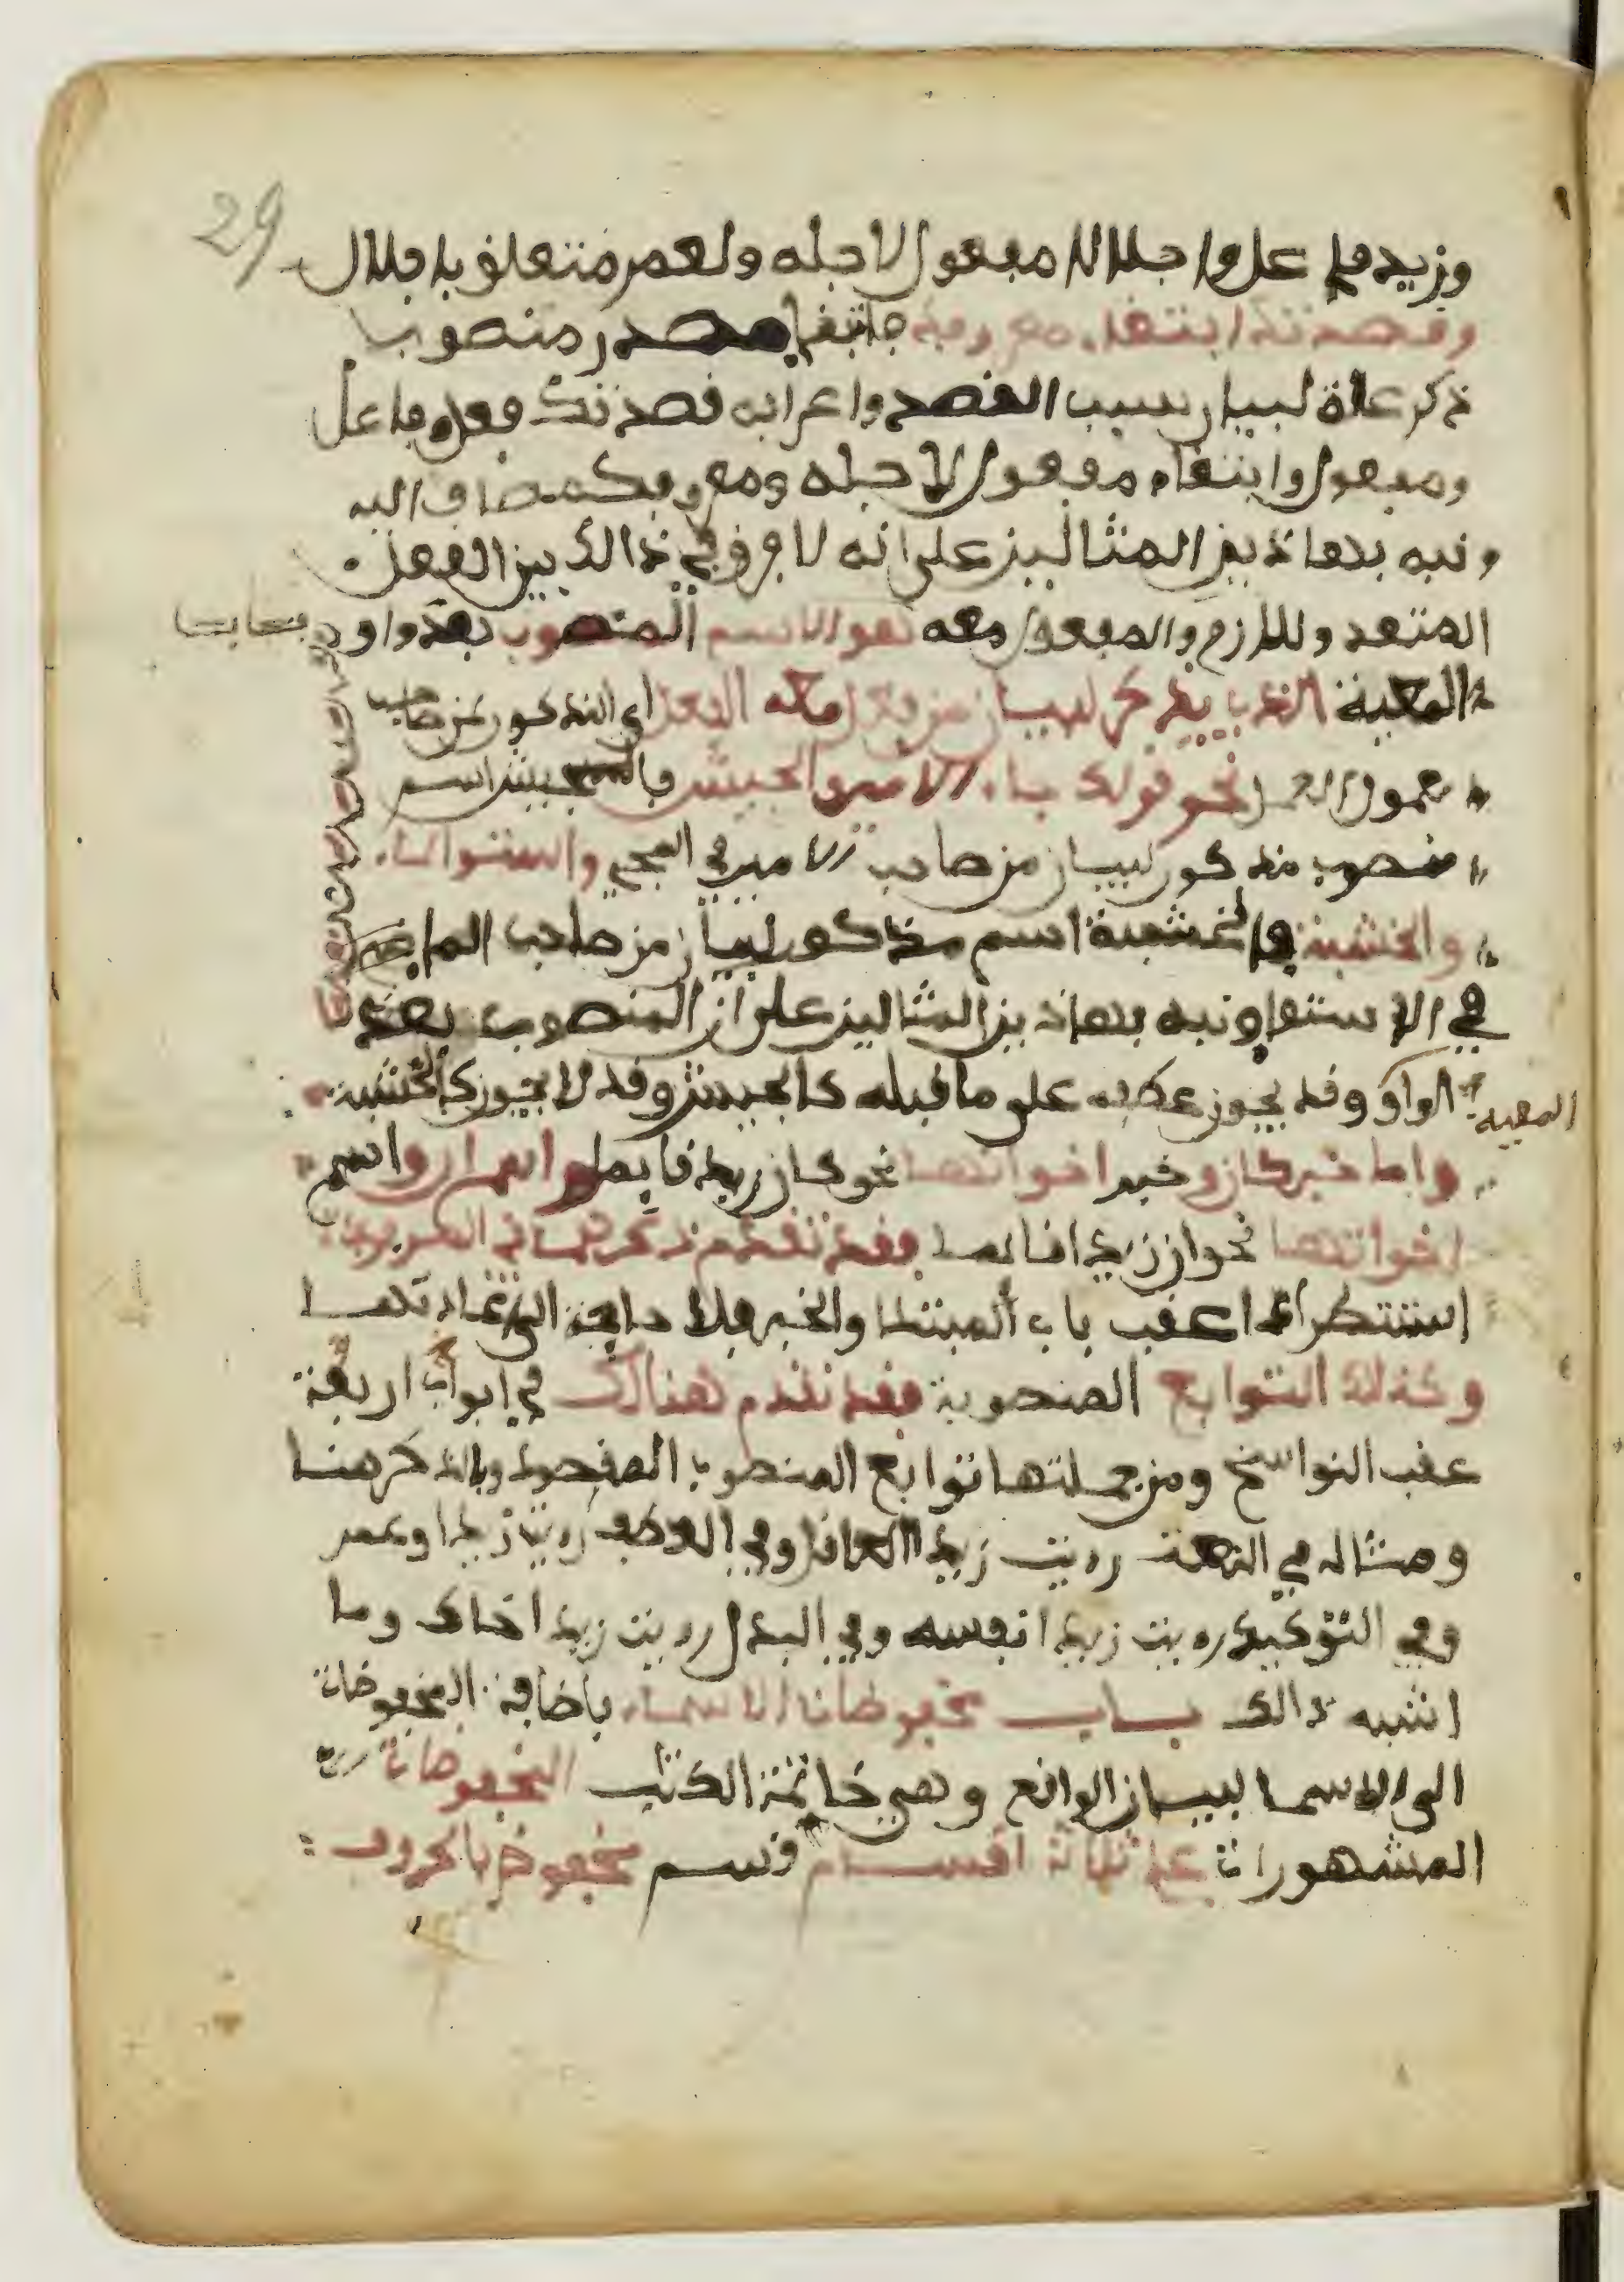 29
وزيد فاعل واجلالا مفعول لاجله ولعمر متعلق باجلال
وقصدتك ابتغاء معروفك فابتغا مصدر منصوب
ذكر علة لبيان سبب القصد واعرابه قصدتك فعل وفاعل
ومفعول وابتغاء مفعول لاجله ومعروفك مضاف اليه
ونبه بهاذين المثالين على انه لا فرق في ذالك بين الفعل
المتعد واللازم والمفعول معه هو الاسم المنصوب بعد واو
المعية الذي يذكر لبيان من فعل معه الفعل اي المذكور من صاحب
معمول الفعل نحو قولك جاء الامير والجيش فالجيش اسم
منصوب مذكور لبيان من صاحب الامير في المجي واستوا الماء
والخشبة فالخشبة اسم مذكور لبيان من صاحب الماء
في الاستوا ونبه بهاذين المثالين على ان المنصوب بعد
الواو قد يجوز عطفه على ما قبله كالجيش وقد لا يجوز كالخشبة
المعية
واما خبر كان وخبر اخواتها نحو كان زيد قايما واسم ان واسم
اخواتها نحو ان زيدا قائم فقد تقدم ذكرهما في المرفوعات
استطرادا عقب باب المبتدا والخبر فلا حاجة الى اعادتهما
وكذلك التوابع المنصوبة فقد تقدم هنالك في ابواب اربعة
عقب النواسخ ومن جملتها توابع المنصوب المقصود بالذكر هنا
ومثاله في النعت رءيت زيدا العاقل وفي العطف رءيت زيدا وعمر
وفي التوكيد رءيت زيدا نفسه وفي البدل رءيت زيدا اخاك وما
اشبه ذالك باب مخفوضات الاسماء باضافة المخفوضات
الى الاسما لبيان الواقع وهي خاتمة الكتب المخفوضات
المشهورات على ثلاثة اقسام قسم مخفوض بالحروف